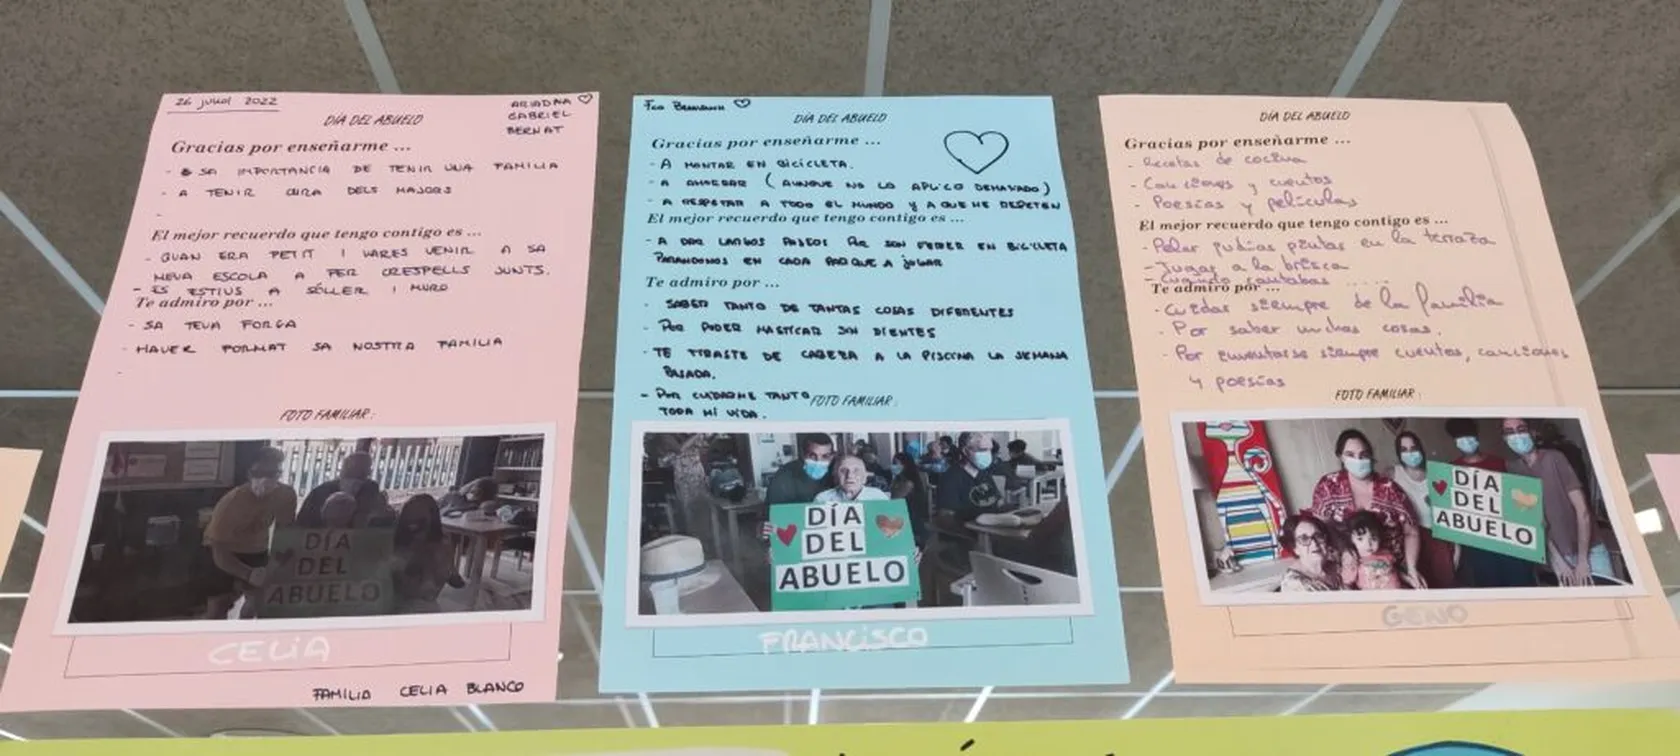 26 juliol 2022
ARIADNA
GABRIEL
BERNAT
DÍA DEL ABUELO
Gracias por enseñarme ...
- SA IMPORTANCIA DE TENIR UNA FAMILIA
- A TENIR CURA DELS MAJORS
-
El mejor recuerdo que tengo contigo es ...
- QUAN ERA PETIT I VARES VENIR A SA
MEVA ESCOLA A FER CRESPELLS JUNTS.
- ES ESTIUS A SÓLLER I MURO
Te admiro por ...
- SA TEVA FORÇA
- HAVER FORMAT SA NOSTRA FAMILIA
-
FOTO FAMILIAR :
DÍA
DEL
ABUELO
CELIA
FAMILIA CELIA BLANCO
DÍA DEL ABUELO
Gracias por enseñarme ...
- A MONTAR EN BICICLETA.
- A AHORRAR (AUNQUE NO LO APLICO DEMASIADO)
- A RESPETAR A TODO EL MUNDO Y A QUE ME RESPETEN
El mejor recuerdo que tengo contigo es ...
- A DAR LARGOS PASEOS POR SON FERRER EN BICICLETA
PARANDONOS EN CADA PARQUE A JUGAR
Te admiro por ...
- SABER TANTO DE TANTAS COSAS DIFERENTES
- POR PODER MASTICAR SIN DIENTES
- TE TIRASTE DE CABEZA A LA PISCINA LA SEMANA
PASADA.
- POR CUIDARME TANTO
TODA MI VIDA.
FOTO FAMILIAR :
DÍA
DEL
ABUELO
FRANCISCO
DÍA DEL ABUELO
Gracias por enseñarme ...
- Recetas de cocina
- Canciones y cuentos
- Poesías y películas
El mejor recuerdo que tengo contigo es ...
- Pelar judías pintas en la terraza
- Jugar a la brisca
- Cuando cantabas .....
Te admiro por ...
- Cuidar siempre de la familia
- Por saber muchas cosas.
- Por inventarse siempre cuentos, canciones
y poesías
FOTO FAMILIAR :
DÍA
DEL
ABUELO
GENO